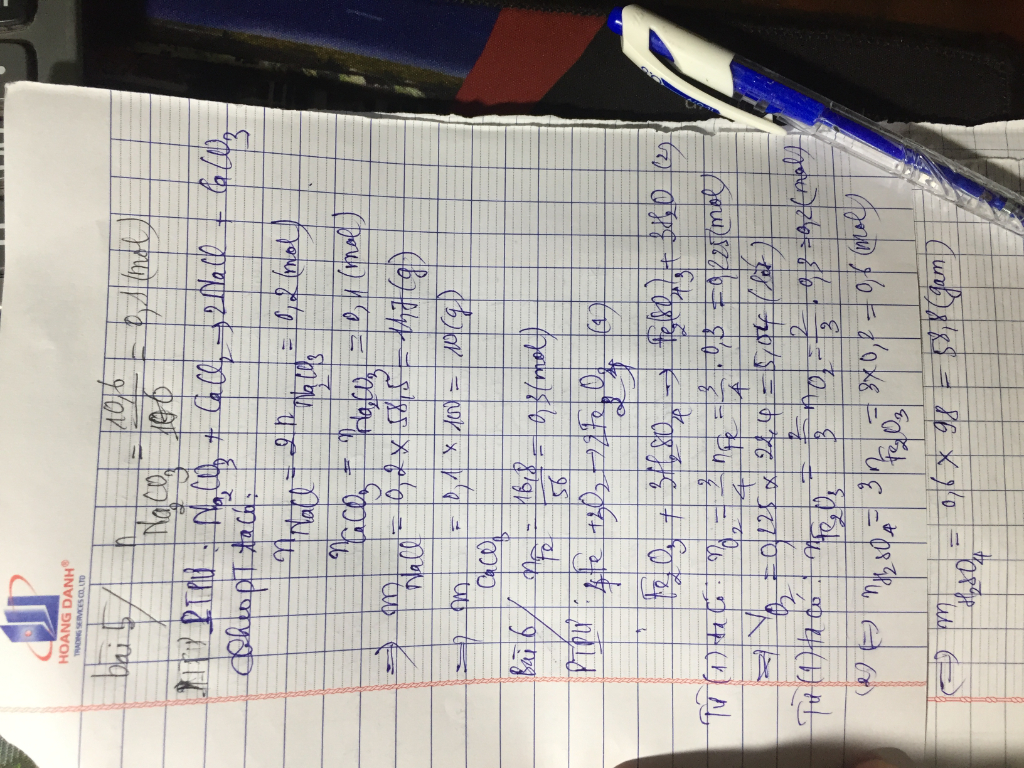 HOANG DANH®
TRADING SERVICES CO., LTD
bài 5/ n Na2CO3 = 10,6/106 = 0,1 (mol)
PTPƯ: Na2CO3 + CaCl2 → 2NaCl + CaCO3
theo PT ta có:
nNaCl = 2n Na2CO3 = 0,2 (mol)
nCaCO3 = nNa2CO3 = 0,1 (mol)
=> m NaCl = 0,2 x 58,5 = 11,7 (g)
=> m CaCO3 = 0,1 x 100 = 10 (g)
Bài 6/ nFe = 16,8/56 = 0,3 (mol)
PTPƯ: 4Fe + 3O2 → 2Fe2O3 (1)
Fe2O3 + 3H2SO4 → Fe2(SO4)3 + 3H2O (2)
Từ (1) ta có: nO2 = 3/4 nFe = 3/4 . 0,3 = 0,225 (mol)
=> VO2 = 0,225 x 22,4 = 5,04 (lít)
Từ (1) ta có: nFe2O3 = 2/3 nO2 = 2/3 . 0,3 = 0,2 (mol)
(2) => nH2SO4 = 3 nFe2O3 = 3 x 0,2 = 0,6 (mol)
=> m H2SO4 = 0,6 x 98 = 58,8 (gam)